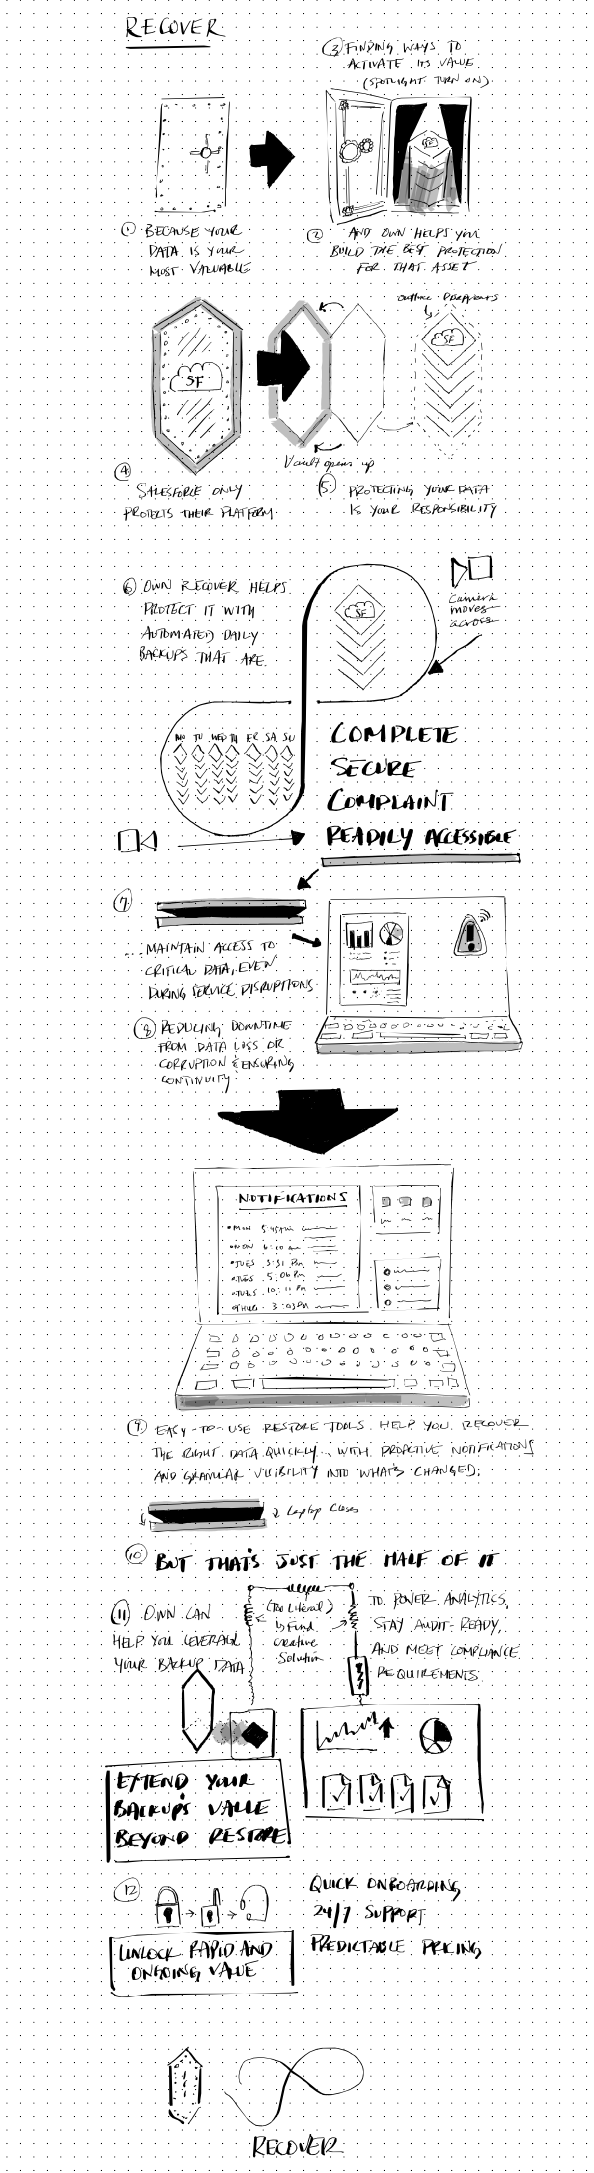 RECOVER
③ FINDING WAYS TO
ACTIVATE ITS VALUE
(SPOTLIGHT TURN ON)
SF
① BECAUSE YOUR
DATA IS YOUR
MOST VALUABLE
② AND OWN HELPS YOU
BUILD THE BEST PROTECTION
FOR THAT ASSET
outline
SF
SF
Vault opens up
④
SALESFORCE ONLY
PROTECTS THEIR PLATFORM
⑤ PROTECTING YOUR DATA
IS YOUR RESPONSIBILITY
⑥ OWN RECOVER HELPS
PROTECT IT WITH
AUTOMATED DAILY
BACKUPS THAT ARE.
SF
Camera
moves
across
MO TU WED TH FR SA SU
COMPLETE
SECURE
COMPLAINT
READILY ACCESSIBLE
⑦
... MAINTAIN ACCESS TO
CRITICAL DATA, EVEN
DURING SERVICE DISRUPTIONS
⑧ REDUCING DOWNTIME
FROM DATA LOSS OR
CORRUPTION & ENSURING
CONTINUITY
NOTIFICATIONS
• MON 5:45
• MON 6:10 am
• TUES 3:31 PM
• TUES 5:06 PM
• TUES 10:11 PM
• THUR 3:03 PM
⑨ EASY-TO-USE RESTORE TOOLS HELP YOU RECOVER
THE RIGHT DATA QUICKLY... WITH PROACTIVE NOTIFICATIONS
AND GRANULAR VISIBILITY INTO WHAT'S CHANGED.
Laptop closes
⑩ BUT THAT'S JUST THE HALF OF IT
⑪ OWN CAN
HELP YOU LEVERAGE
YOUR BACKUP DATA
(Too Literal)
Find
creative
Solution
TO POWER ANALYTICS,
STAY AUDIT-READY,
AND MEET COMPLIANCE
REQUIREMENTS
EXTEND YOUR
BACKUP'S VALUE
BEYOND RESTORE
⑫
UNLOCK RAPID AND
ONGOING VALUE
QUICK ONBOARDING
24/7 SUPPORT
PREDICTABLE PRICING
RECOVER